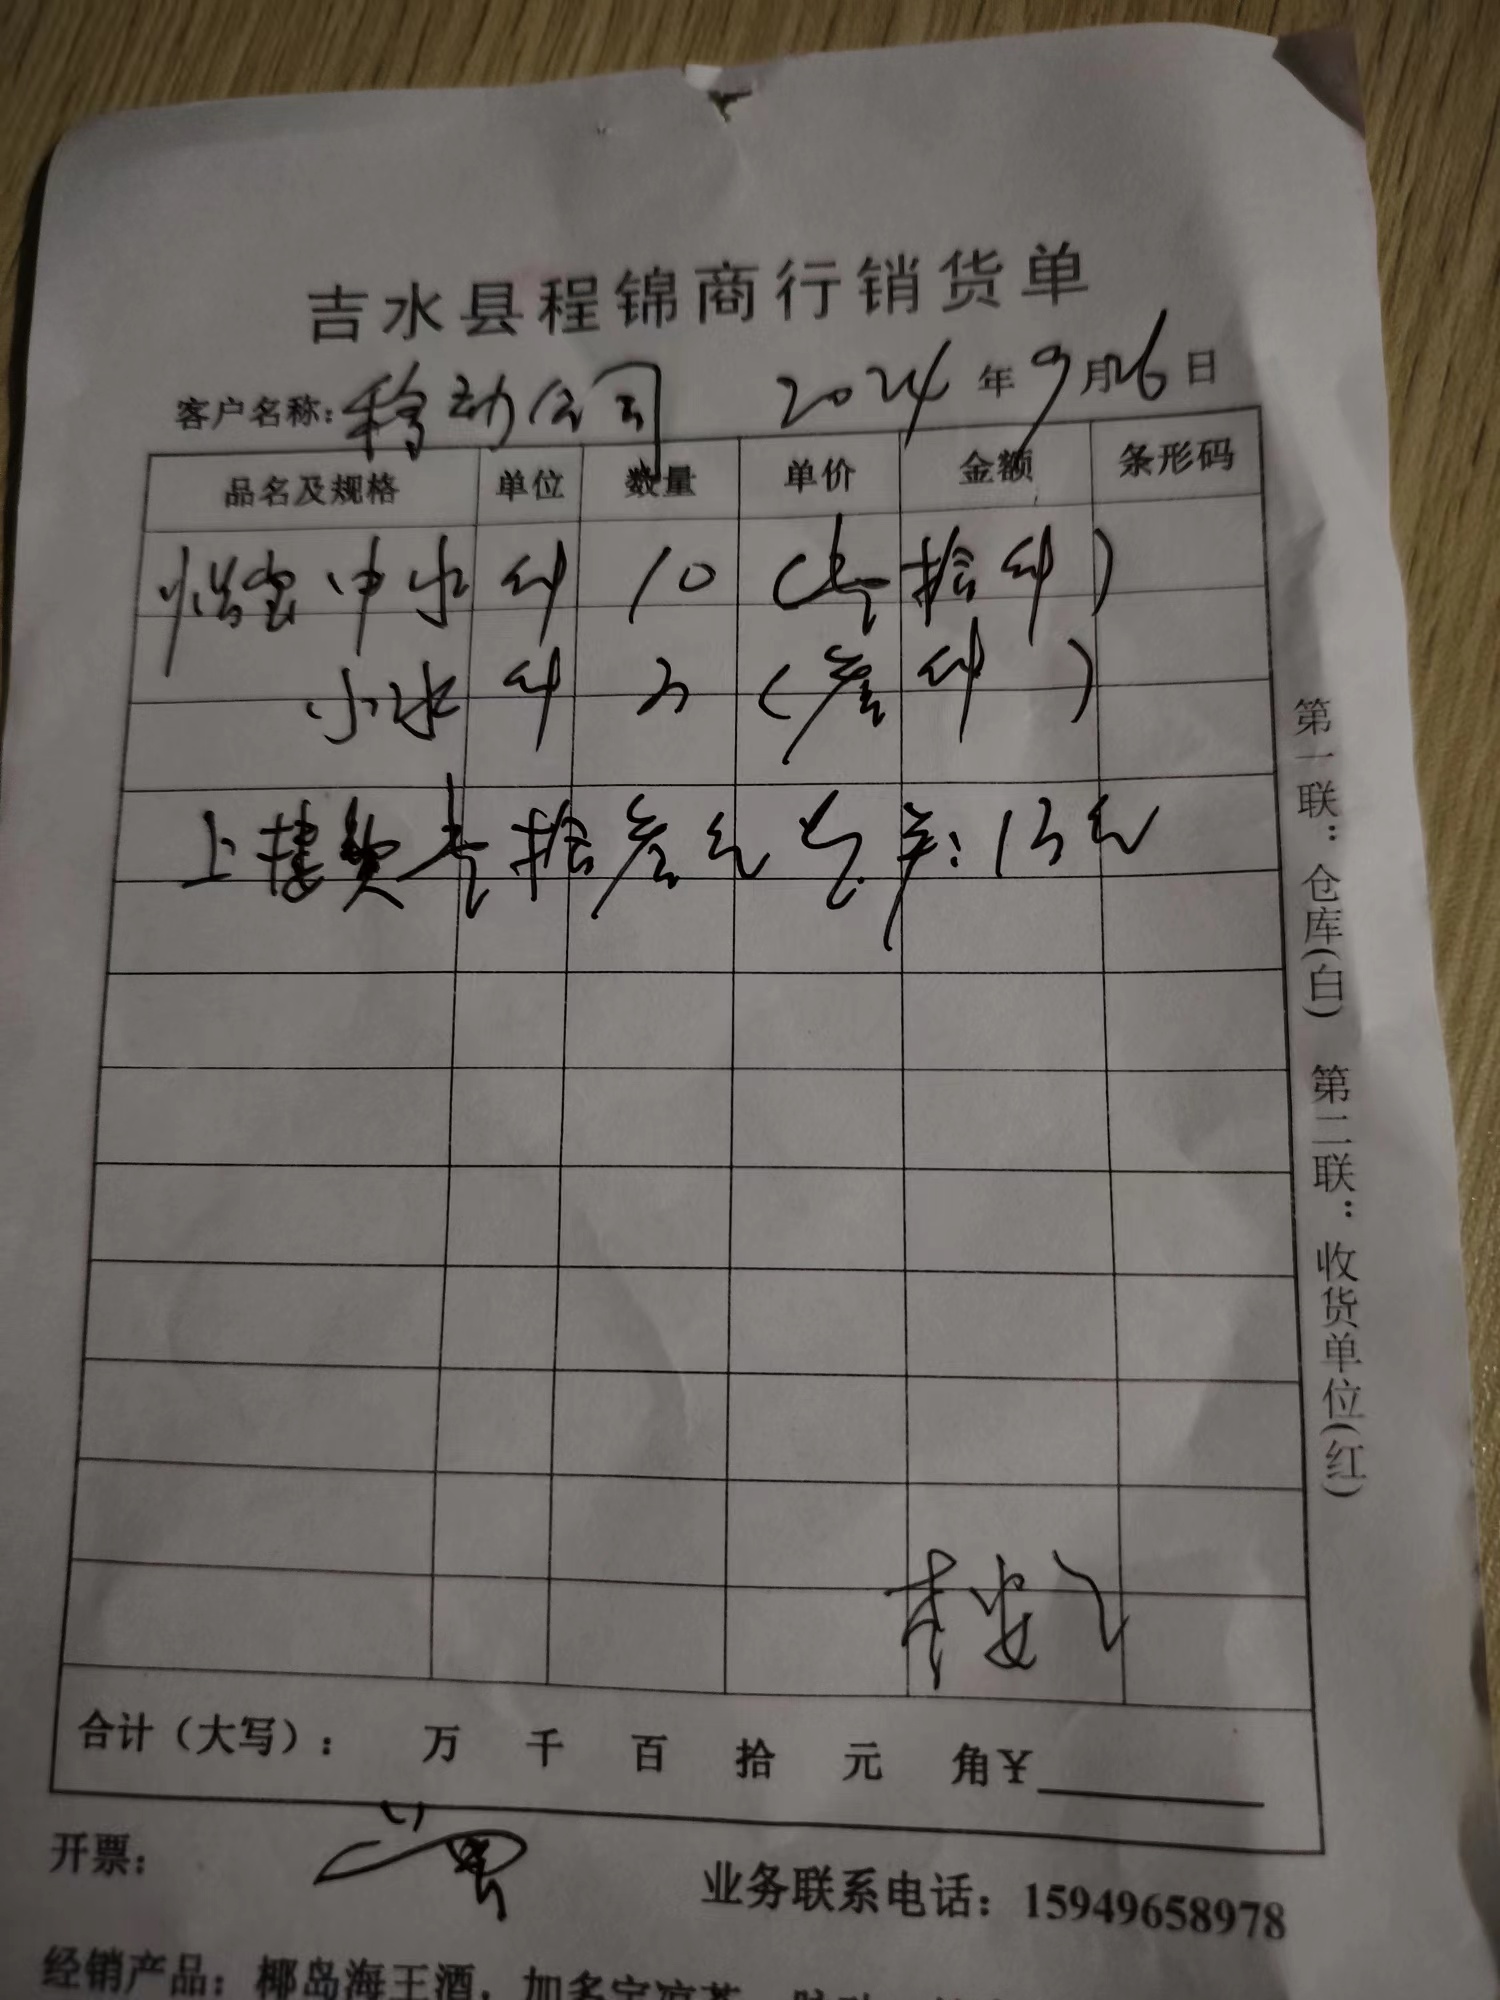 吉水县程锦商行销货单
客户名称: 移动公司 2024 年 9 月 26 日
品名及规格 单位 数量 单价 金额 条形码
怡宝中水 件 10 (壹拾件)
小水 件 3 (叁件)
上楼费壹拾叁元 ¥: 13元
合计（大写）: 万 千 百 拾 元 角¥
开票:
业务联系电话: 15949658978
经销产品: 椰岛海王酒, 加多宝凉茶
第一联: 仓库(白) 第二联: 收货单位(红)